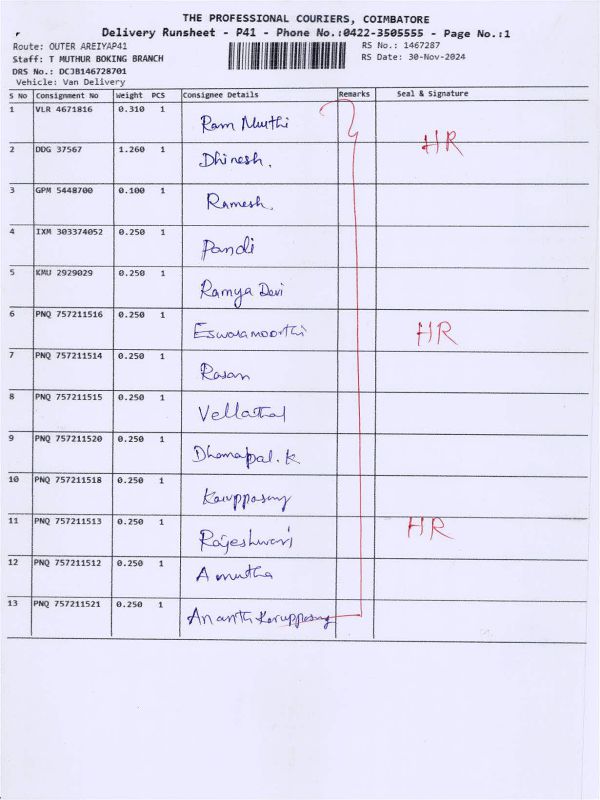 THE PROFESSIONAL COURIERS, COIMBATORE
Delivery Runsheet - P41 - Phone No.:0422-3505555 - Page No.:1
Route: OUTER AREIYAP41 RS No.: 1467287
Staff: T MUTHUR BOKING BRANCH RS Date: 30-Nov-2024
DRS No.: DCJB146728701
Vehicle: Van Delivery
S No Consignment No Weight PCS Consignee Details Remarks Seal & Signature
1 VLR 4671816 0.310 1 Ram Muthi
2 DDG 37567 1.260 1 Dhinesh. HR
3 GPM 5448700 0.100 1 Ramesh.
4 IXM 303374052 0.250 1 Pandi
5 KMU 2929029 0.250 1 Ramya Devi
6 PNQ 757211516 0.250 1 Eswaramoorthi HR
7 PNQ 757211514 0.250 1 Rasan
8 PNQ 757211515 0.250 1 Vellathal
9 PNQ 757211520 0.250 1 Dhanapal.K
10 PNQ 757211518 0.250 1 Karuppasmy
11 PNQ 757211513 0.250 1 Rajeshwari HR
12 PNQ 757211512 0.250 1 Amutha
13 PNQ 757211521 0.250 1 Ananth Karuppasmy